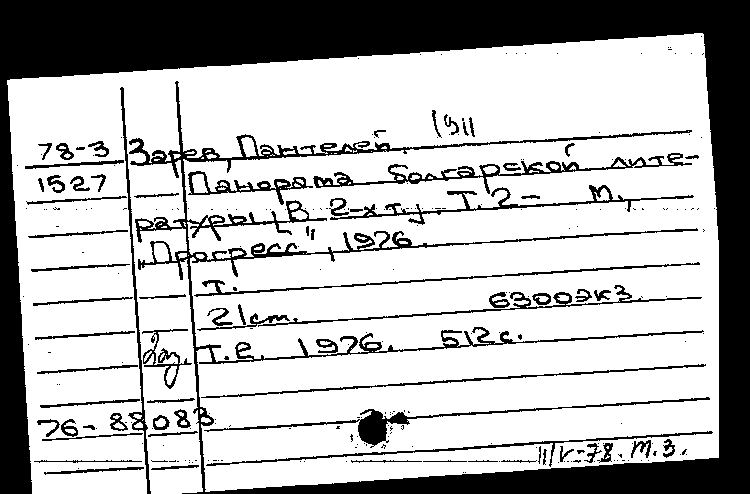 78-3 Зарев, Пантелей. 1911
1527 Панорама болгарской лите-
ратуры [В 2-х т.]. Т. 2- М.,
„Прогресс", 1976.
т.
21 ст. 6300экз.
Т.2. 1976. 512с.
76-88083
11/V-78. Т.З.